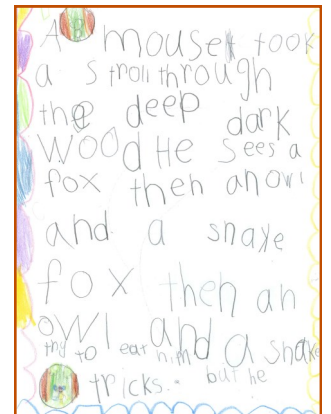 A mouse took
a stroll through
the deep dark
wood He sees a
fox then an owl
and a snake
fox then an
owl and a snake
try to eat him
but he
tricks.